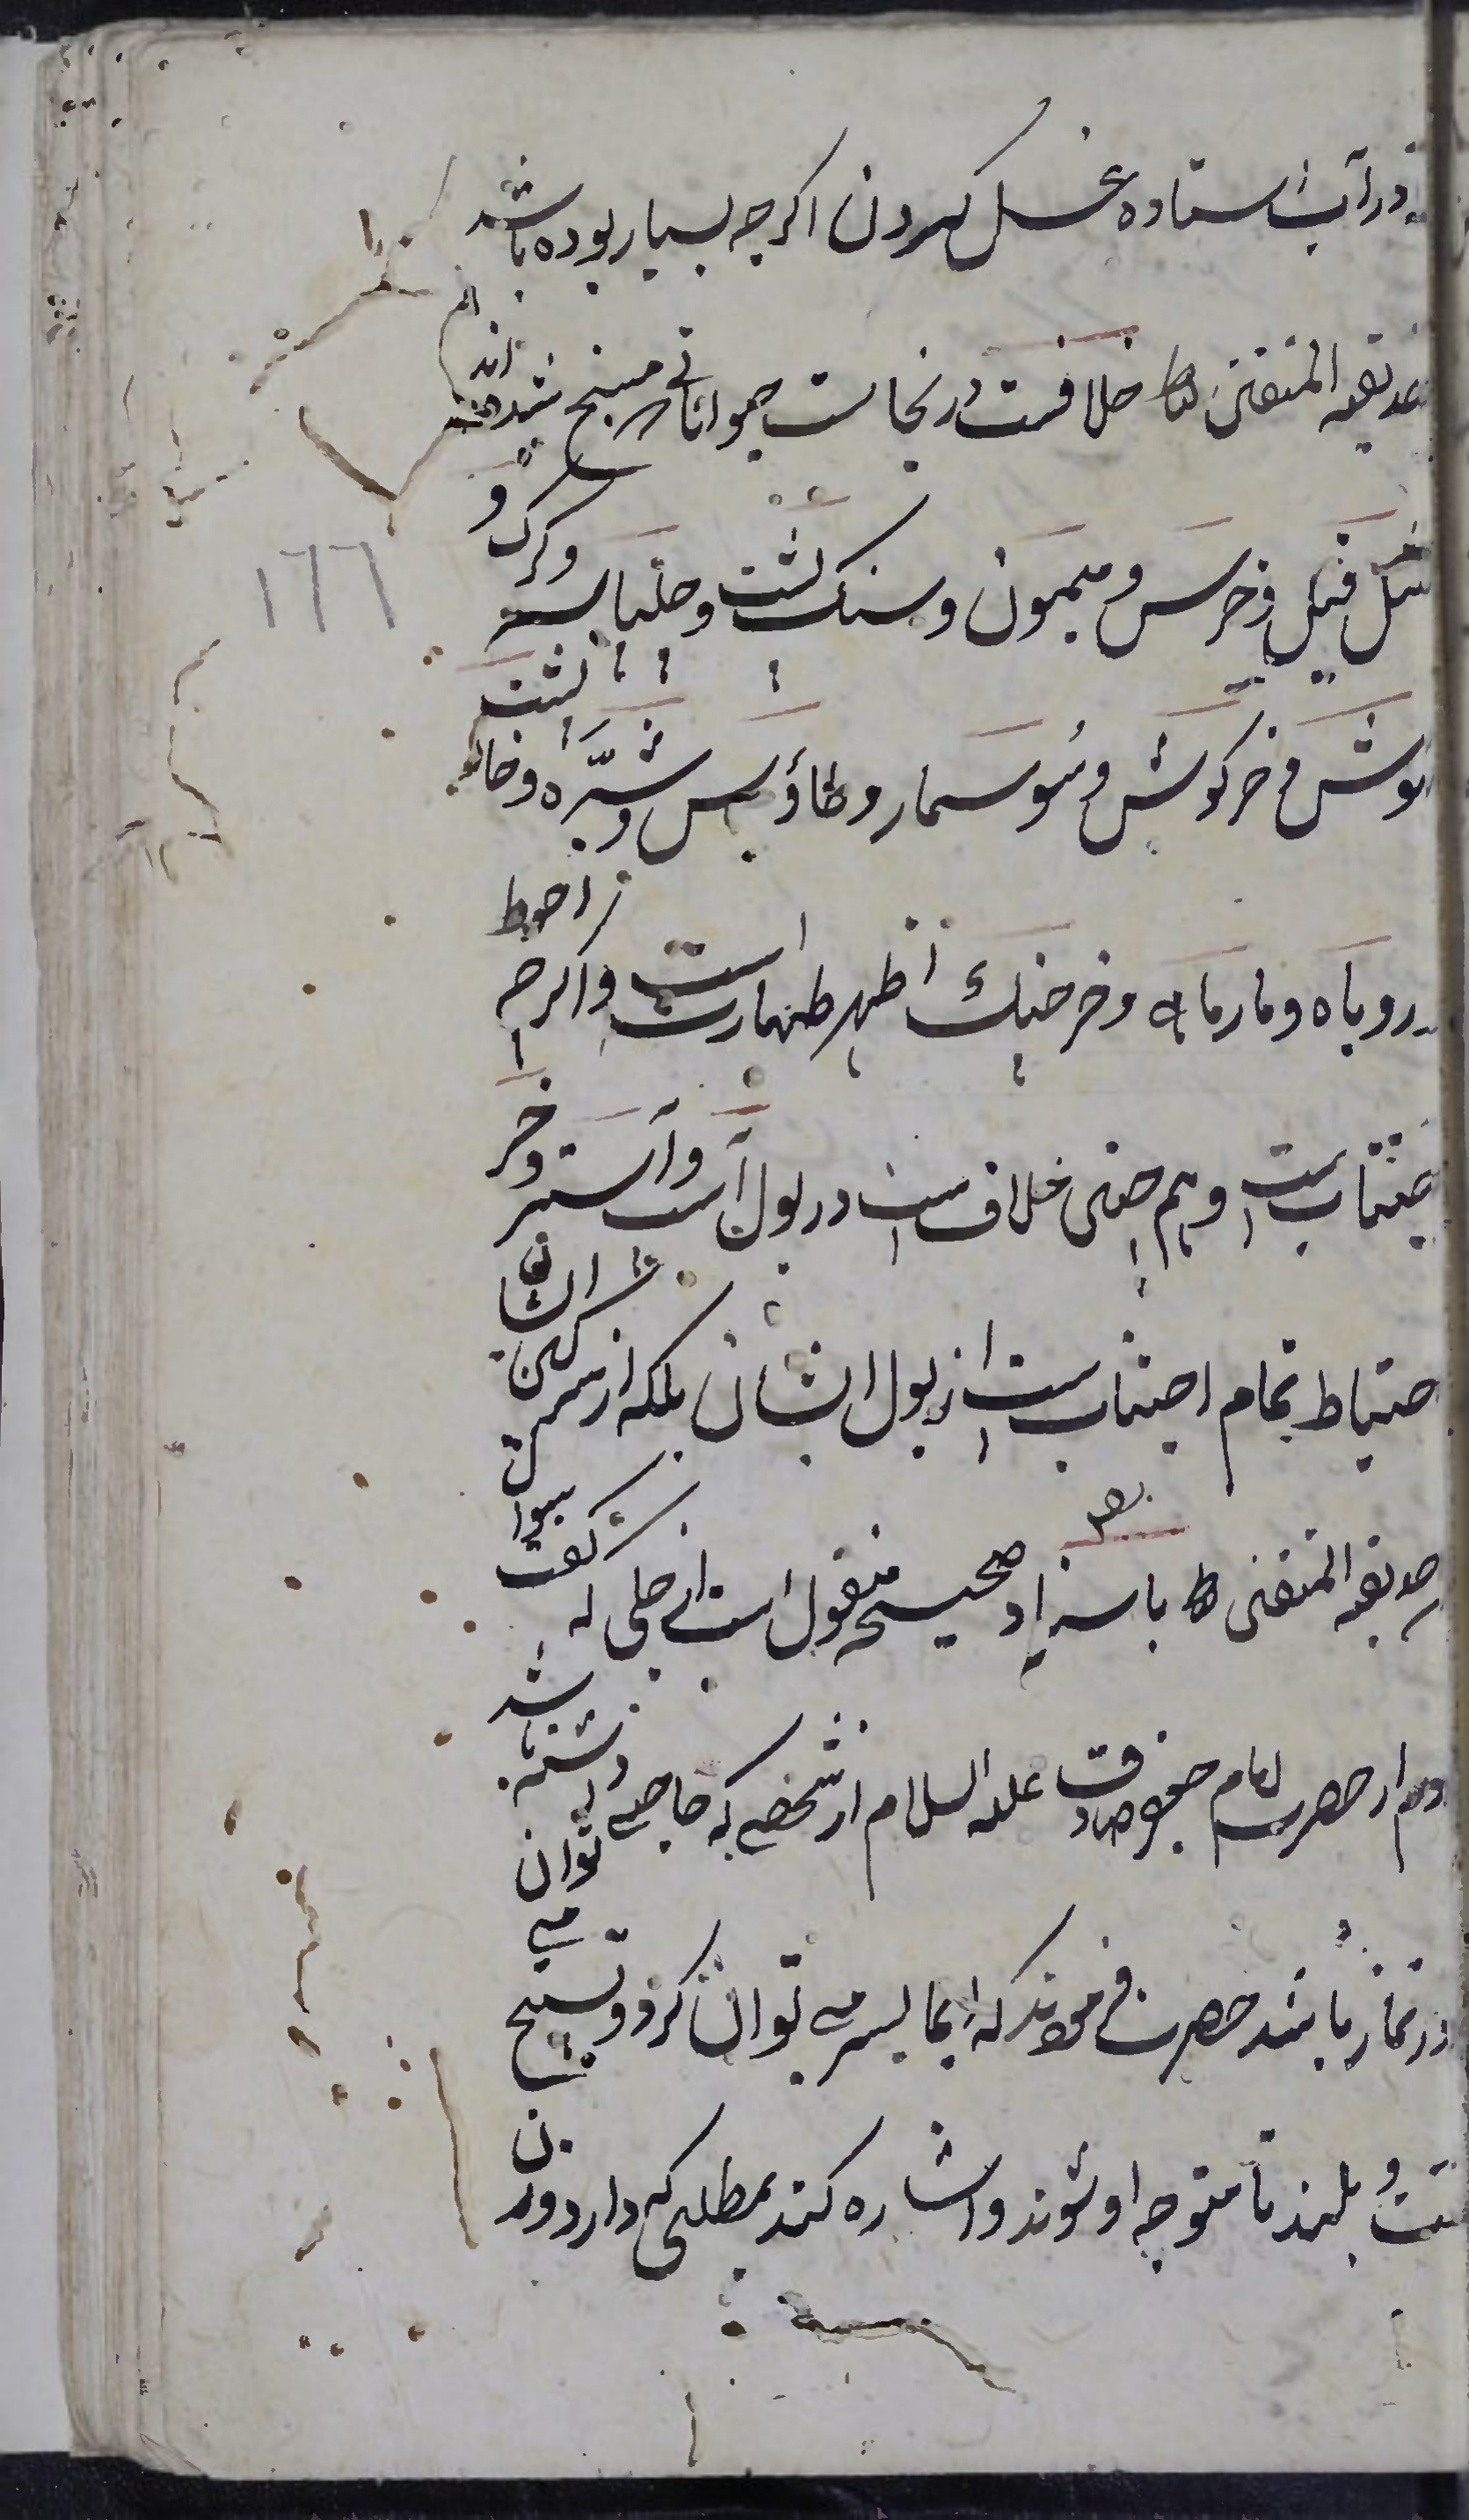 در آب استاده غسل کردن اکرچه بسیار بوده باشد
حدیقه المتقین خلافست در نجاست حیواناتی مسخ شده‌اند
مثل فیل و خرس و میمون و سنک پشت و چلپاسه و کرک و
موش و خرکوش و سوسمار و طاؤس و شپّره و خارپشت
و روباه و مارماهی و خرچنک اظهر طهارت است و اکرچه احوط
اجتنابست و همچنین خلاف است در بول اسب و استر و خر
احتیاط تمام اجتناب است از بول ایشان بلکه از سرکین ایشان
حدیقه المتقین باسناد صحیحه منقول است از حلبی که کفت سوال
کردم از حضرت امام جعفر صادق علیه السلام از شخصی که حاجتی داشته باشد
در نماز باشد حضرت فرمودند که ایما بسر می توان کرد و تسبیح می توان
کفت بلند تا متوجه او شوند و اشاره کند بمطلبی که دارد و زن
١٦٦